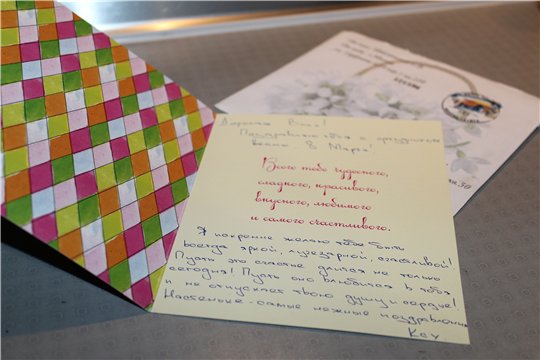 Поздравляю тебя с праздником
весны 8 Марта!
Всего тебе чудесного,
сладкого, красивого,
вкусного, любимого
и самого счастливого.
Я искренне желаю тебе быть
всегда яркой, лучезарной, счастливой!
Пусть это счастье длится не только
сегодня! Пусть оно влюбится в тебя
и не отпускает твою душу и сердце!
Настеньке - самые нежные поздравления